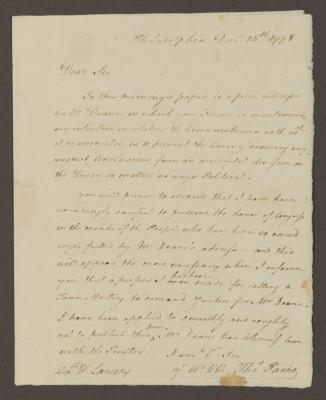 Philadelphia Decr 15th 1778
Dear Sir
In this morning's paper is a piece addressed
to Mr Deane in which your Name is mentioned
my intention in relating the circumstance with
it is connected, is to prevent the Enemy drawing any
unjust Conclusions from an accidental division in
the House on matters no ways Political.
You will please to observe that I have been
exceedingly careful to preserve the honor of Congress
in the minds of the People who have been so exceed-
ingly fuddled by Mr Deane's address — and this
will appear the more necessary when I inform
you that a proposal has been made for calling a
Town Meeting to demand Justice for Mr Deane.
I have been applied to smoothly and roughly
not to publish this piece. Mr Deane has himself been
with the Printer
I am Dr Sir
Thos Paine
Honble H. Laurens